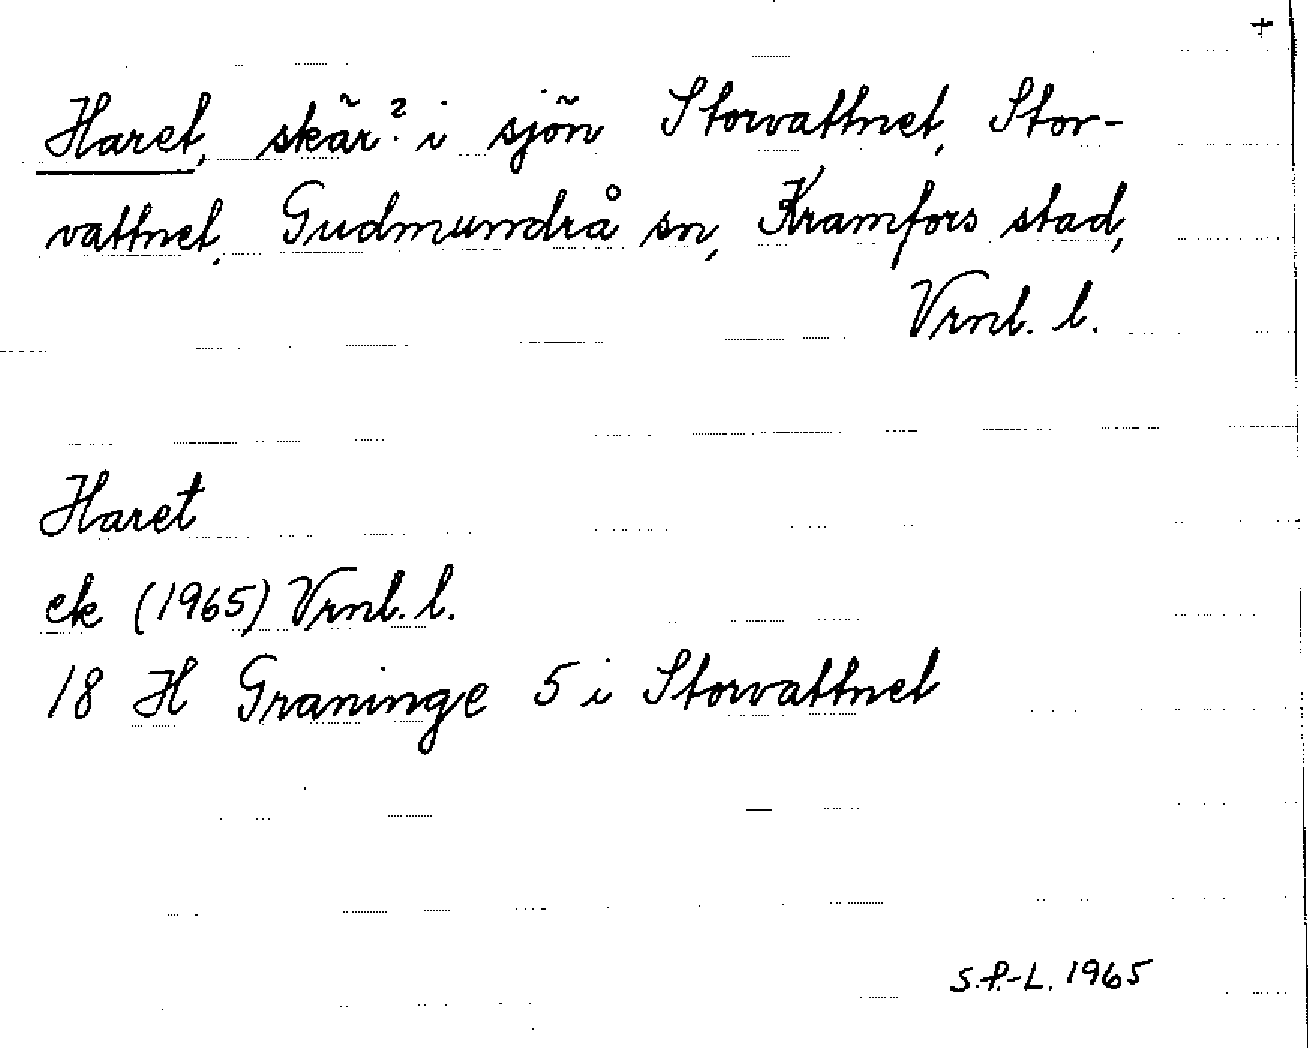 +
Haret, skär? i sjön Storvattnet, Stor-
vattnet, Gudmundrå sn, Kramfors stad,
Vrnl. l.
Haret
ek (1965) Vrnl. l.
18 H Graninge 5 i Storvattnet
S.P.-L. 1965